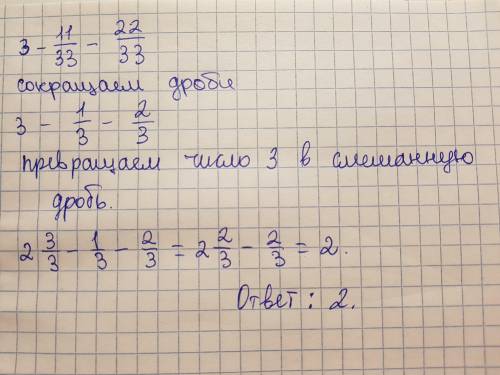 3 - 11/33 - 22/33
сокращаем дроби
3 - 1/3 - 2/3
превращаем число 3 в смешанную
дробь.
2 3/3 - 1/3 - 2/3 = 2 2/3 - 2/3 = 2.
Ответ: 2.